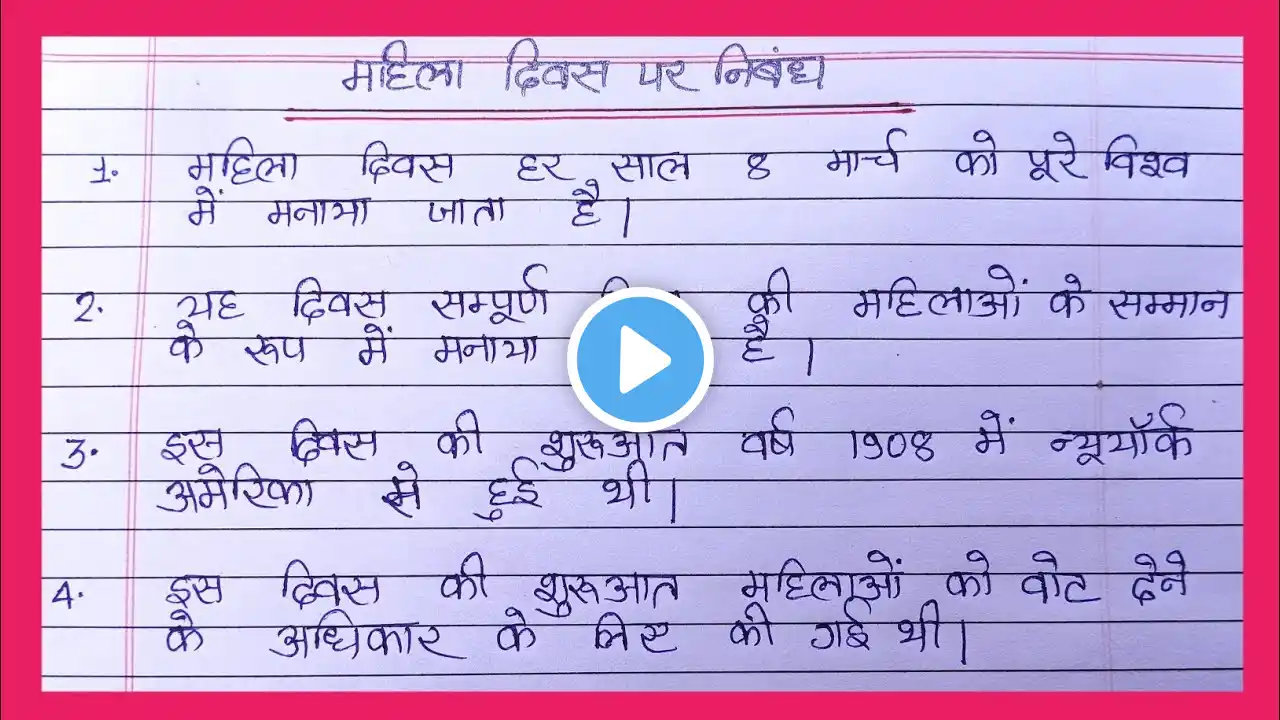 महिला दिवस पर निबंध
1. महिला दिवस हर साल 8 मार्च को पूरे विश्व
में मनाया जाता है।
2. यह दिवस सम्पूर्ण की महिलाओं के सम्मान
के रूप में मनाया है।
3. इस दिवस की शुरूआत वर्ष 1908 में न्यूयॉर्क
अमेरिका से हुई थी।
4. इस दिवस की शुरूआत महिलाओं को वोट देने
के अधिकार के लिए की गई थी।